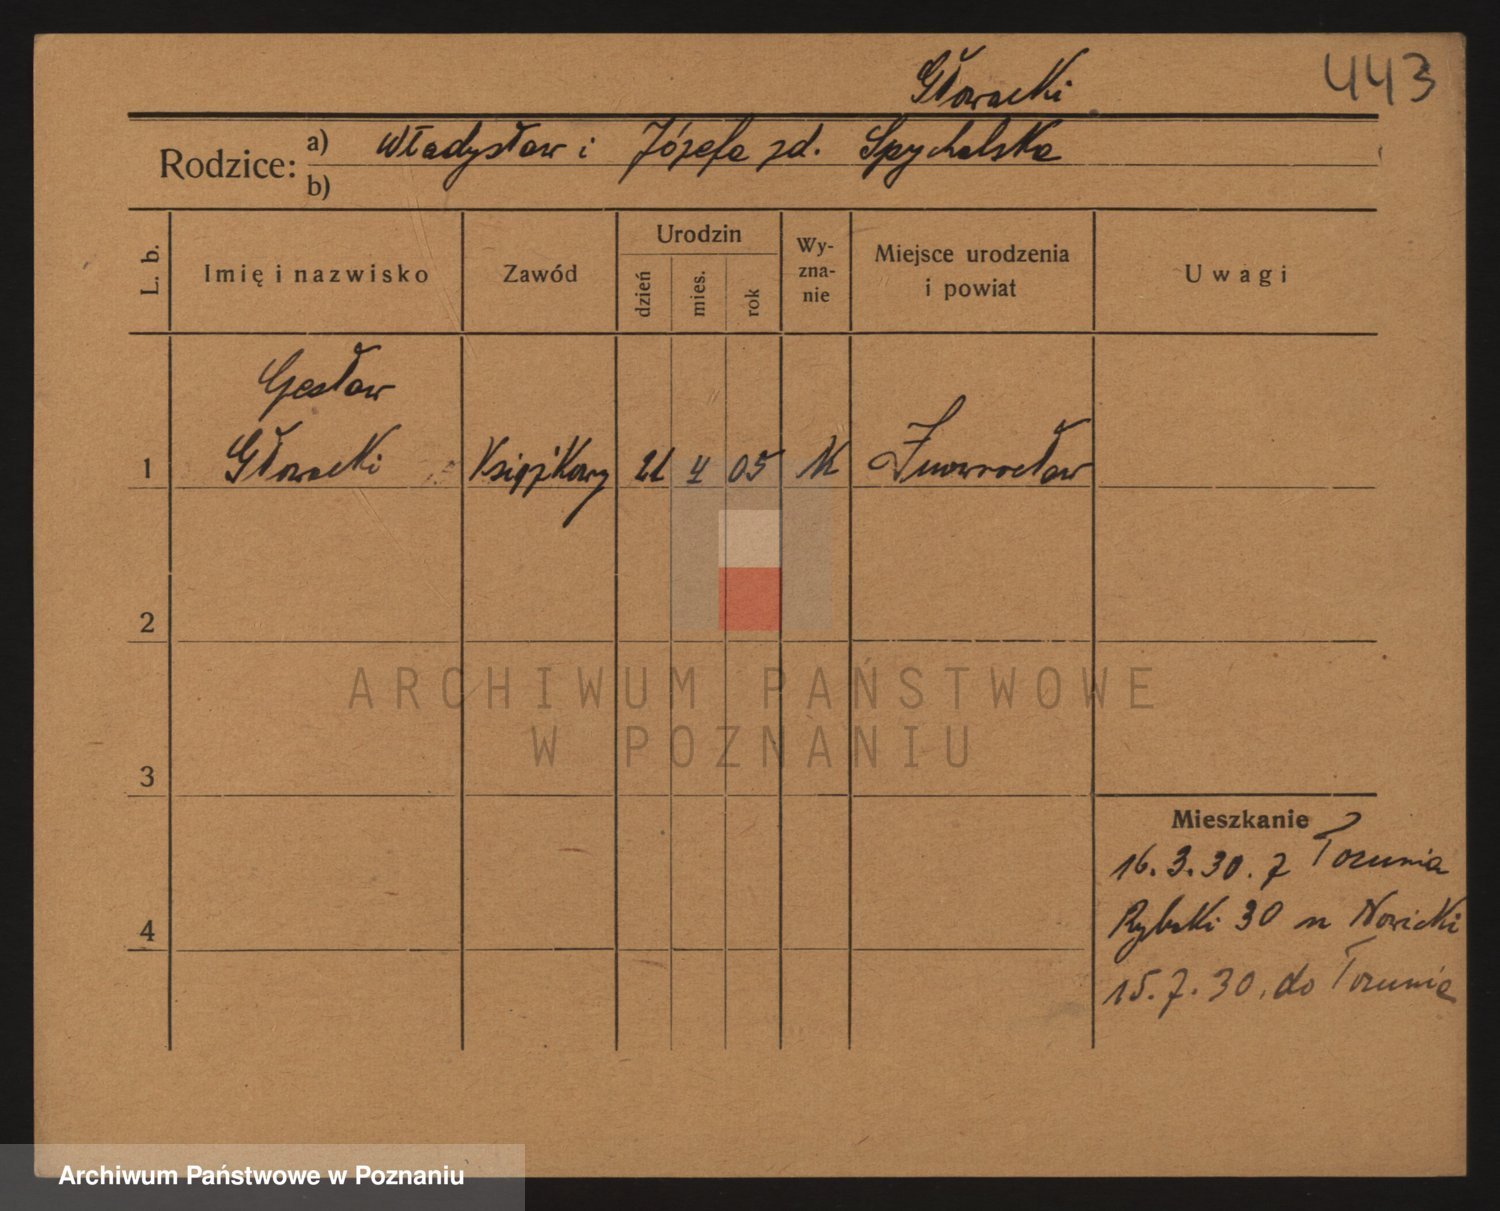 443
Głowacki
Rodzice: a) Władysław i Józefa zd. Spychalska
b)
L. b. Imię i nazwisko Zawód Urodzin dzień mies. rok Wy-zna-nie Miejsce urodzenia i powiat Uwagi
Czesław
1 Głowacki Książkowy 21 4 05 rk Inowrocław
2
ARCHIWUM PAŃSTWOWE
W POZNANIU
3
Mieszkanie
16.3.30. z Torunia
4 Rybaki 30 Nowicki
15.7.30. do Torunia
Archiwum Państwowe w Poznaniu